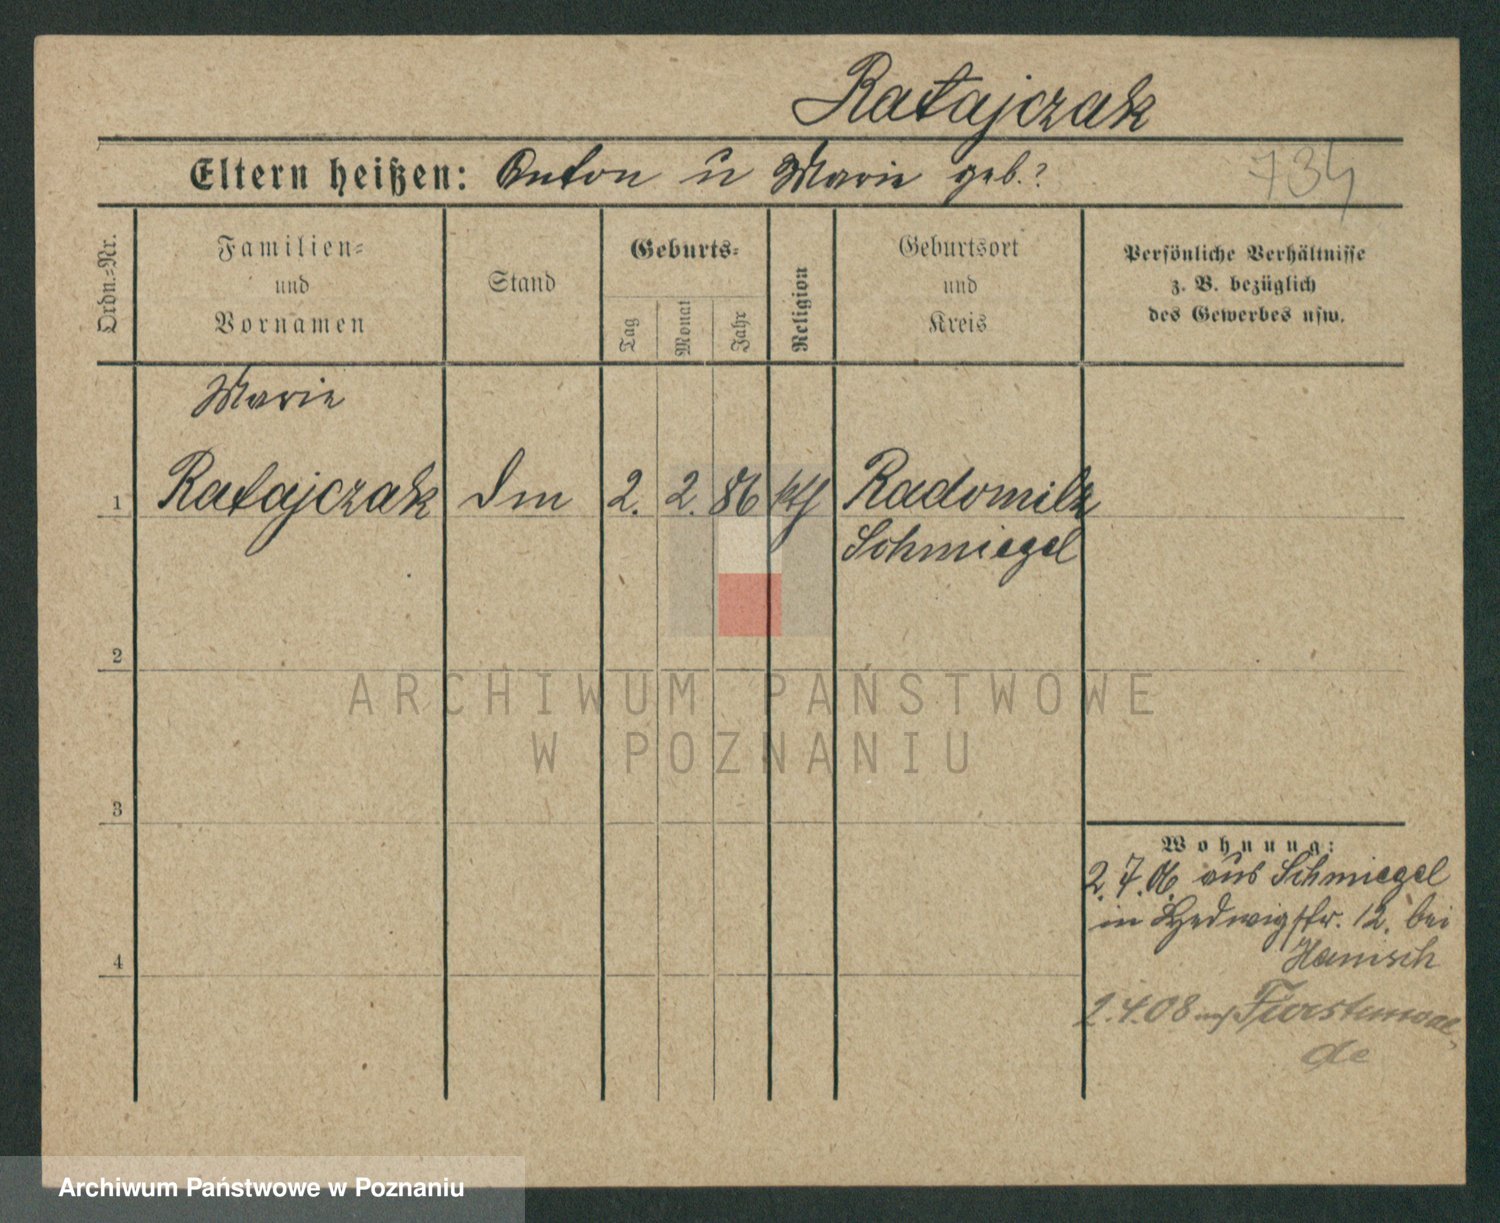 Ratajczak
Eltern heißen: Anton u Marie geb.?
734
Ordn.-Nr.
Familien-
und
Vornamen
Stand
Geburts-
Tag
Monat
Jahr
Religion
Geburtsort
und
Kreis
Persönliche Verhältnisse
z. B. bezüglich
des Gewerbes usw.
Marie
1 Ratajczak Dm 2. 2. 86 kth Radomitz
Schmiegel
2
ARCHIWUM PAŃSTWOWE
W POZNANIU
3
Wohnung:
2.7.06. aus Schmiegel
in Hedwigstr. 12. bei
Hanisch
4
2.4.08 Fürstenwal-
de
Archiwum Państwowe w Poznaniu